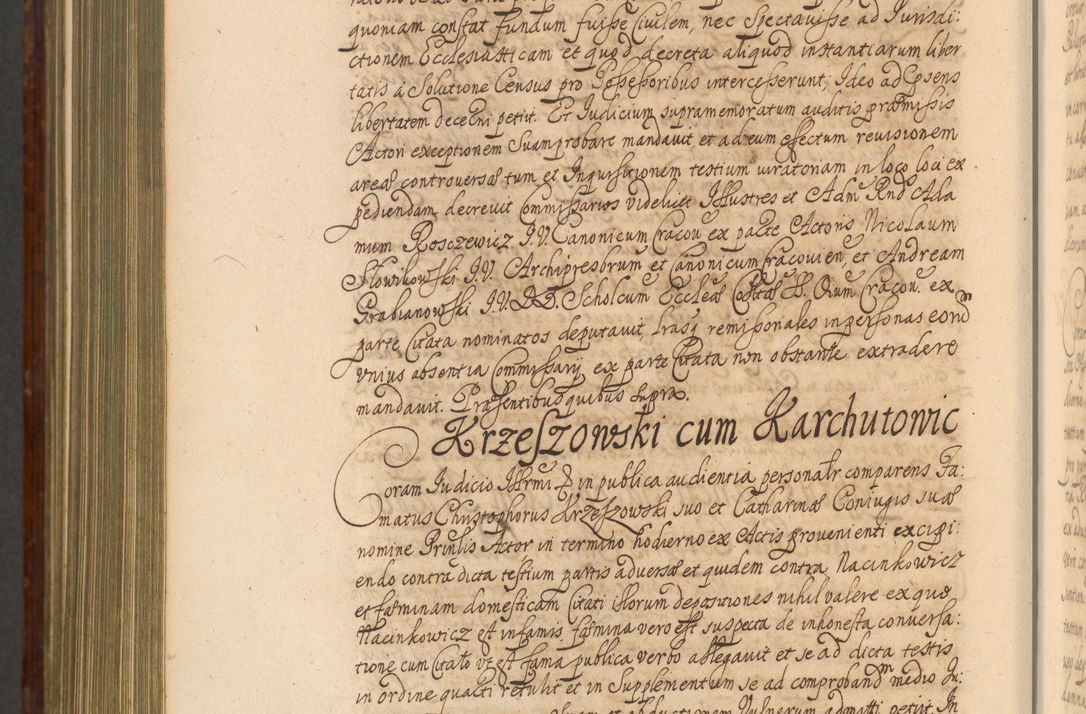 quoniam constat fundum fuisse Civilem, nec spectavisse ad Jurisdi:
ctionem Ecclesiasticam et quod decreta aliquod instantiarum liber
tatis à Solutione Census pro Possessoribus intercesserunt, Ideo ad
libertatem decerni petiit. Et Judicium supramemoratum auditis præmissis
Actori exceptionem suam probare mandauit, et ad eum effectum reuisionem
areæ controversæ tum et Inquisitionem testium iuratoriam in loco loci ex
pediendam decreuit Commissarios videlicet Illustres et Adm Rnds Ada
mum Rosczewicz J.V. Canonicum Cracou ex parte Actoris Nicolaum
Słowikowski J.V. Archipresbrum et Canonicum Cracouien, et Andream
Grabianowski J.V.D.D. Scholcum Eccleæ SS. Oium Cracou. ex
parte Citata nominatos deputauit, lrasq remissionales in personas eorud
vnius absentia Commissarij ex parte Citata non obstante extradere
mandauit. Præsentibus quibus supra.
Krzeszowski cum Karchutowic
Coram Judicio Illrmi D in publica audientia personalr comparens Fa:
matus Christophorus Krzeszowski suo et Catharinæ Coniugis suæ
nomine Prinlis Actor in termino hodierno ex Actis provenienti excipi:
endo contra dicta testium partis adversæ et quidem contra Nacinkowicz
et fæminam domesticam Citati illorum depositiones nihil valere ex quo
Nacinkowicz est infamis fæmina vero est suspecta de inhonesta conuersa:
tione cum Citato vt est fama publica verbo allegauit et se ad dicta testis
in ordine qualti retulit et in Supplementum se ad comprobandm medio Ju:
et abductionem Vulnerum admitti petiit. In